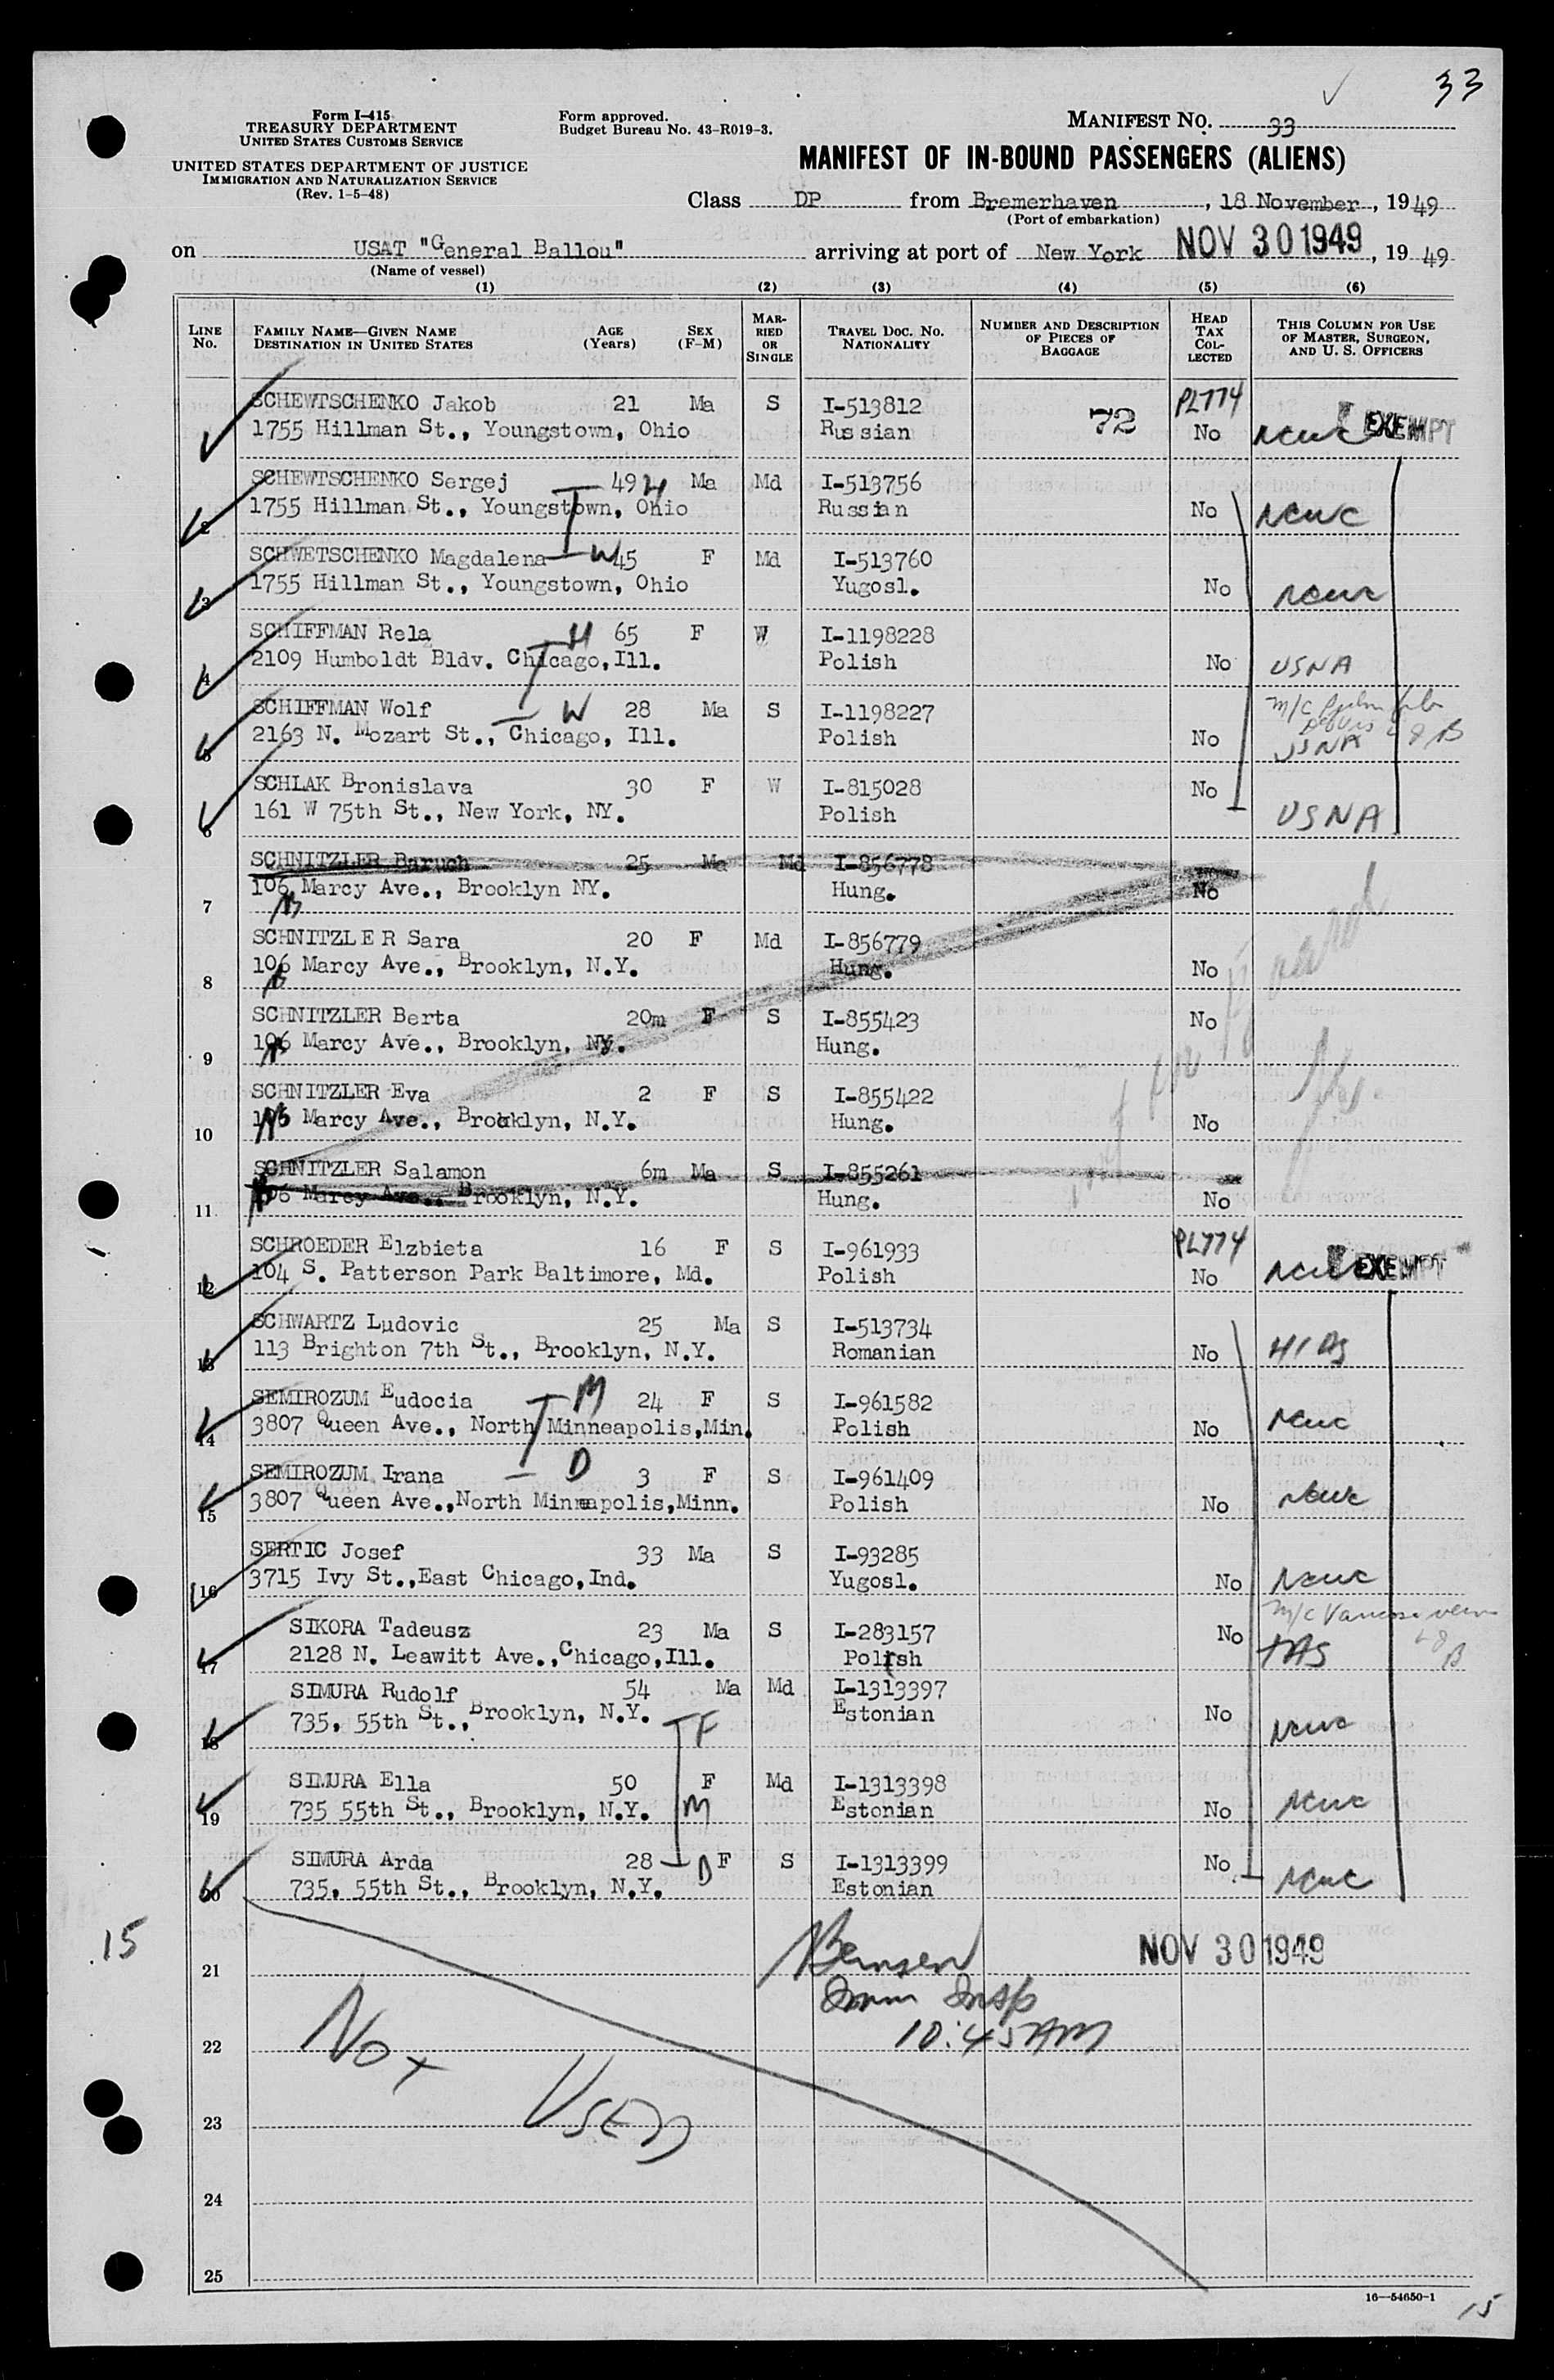 33
Form I-415
TREASURY DEPARTMENT
UNITED STATES CUSTOMS SERVICE
UNITED STATES DEPARTMENT OF JUSTICE
IMMIGRATION AND NATURALIZATION SERVICE
(Rev. 1-5-48)
Form approved.
Budget Bureau No. 43-R019-3.
MANIFEST NO. 33
MANIFEST OF IN-BOUND PASSENGERS (ALIENS)
Class DP from Bremerhaven, 18 November, 1949
(Port of embarkation)
on USAT "General Ballou" arriving at port of New York NOV 30 1949, 1949
(Name of vessel)
(1) (2) (3) (4) (5) (6)
LINE No. FAMILY NAME—GIVEN NAME DESTINATION IN UNITED STATES AGE (Years) SEX (F-M) MARRIED OR SINGLE TRAVEL DOC. NO. NATIONALITY NUMBER AND DESCRIPTION OF PIECES OF BAGGAGE HEAD TAX COLLECTED THIS COLUMN FOR USE OF MASTER, SURGEON, AND U. S. OFFICERS
SCHEWTSCHENKO Jakob 21 Ma S I-513812 PL774
1755 Hillman St., Youngstown, Ohio Russian 72 No NCWC EXEMPT
SCHEWTSCHENKO Sergej 49 H Ma Md I-513756
2 1755 Hillman St., Youngstown, Ohio Russian No NCWC
SCHWETSCHENKO Magdalena W 45 F Md I-513760
3 1755 Hillman St., Youngstown, Ohio Yugosl. No NCWC
SCHIFFMAN Rela H 65 F W I-1198228
4 2109 Humboldt Bldv. Chicago,Ill. Polish No USNA
SCHIFFMAN Wolf W 28 Ma S I-1198227 m/c
5 2163 N. Mozart St., Chicago, Ill. Polish No USNA
SCHLAK Bronislava 30 F W I-815028 No
6 161 W 75th St., New York, NY. Polish USNA
SCHNITZLER Baruch 25 Ma Md I-856778
7 106 Marcy Ave., Brooklyn NY. Hung. No
SCHNITZLER Sara 20 F Md I-856779
8 106 Marcy Ave., Brooklyn, N.Y. Hung. No
SCHNITZLER Berta 20m F S I-855423 No
9 106 Marcy Ave., Brooklyn, NY. Hung.
SCHNITZLER Eva 2 F S I-855422
10 106 Marcy Ave., Brooklyn, N.Y. Hung. No
SCHNITZLER Salamon 6m Ma S I-855261
11 106 Marcy Ave., Brooklyn, N.Y. Hung. No
Not on Board
SCHROEDER Elzbieta 16 F S I-961933 PL774
12 104 S. Patterson Park Baltimore, Md. Polish No NCWC EXEMPT
SCHWARTZ Ludovic 25 Ma S I-513734
13 113 Brighton 7th St., Brooklyn, N.Y. Romanian No HIAS
SEMIROZUM Eudocia M 24 F S I-961582
14 3807 Queen Ave., North Minneapolis,Min. Polish No NCWC
SEMIROZUM Irana D 3 F S I-961409
15 3807 Queen Ave.,North Minneapolis,Minn. Polish No NCWC
SERTIC Josef 33 Ma S I-93285
16 3715 Ivy St.,East Chicago,Ind. Yugosl. No NCWC
SIKORA Tadeusz 23 Ma S I-283157 No m/c
17 2128 N. Leawitt Ave.,Chicago,Ill. Polish
SIMURA Rudolf 54 Ma Md I-1313397
18 735, 55th St., Brooklyn, N.Y. F Estonian No NCWC
SIMURA Ella 50 F Md I-1313398
19 735 55th St., Brooklyn, N.Y. M Estonian No NCWC
SIMURA Arda 28 D F S I-1313399 No
20 735, 55th St., Brooklyn, N.Y. Estonian NCWC
15
21 NOV 30 1949
Imm Insp
22 Not 10:45AM
23 Used
24
25
16—54650-1
15